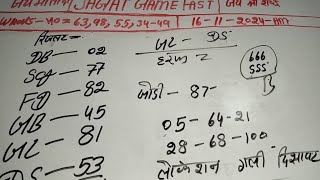 JAGAT GAME FAST
NO = 63, 98, 55, 34-49
16 - 11 - 2024 -
DB - 02
77
FD - 82
GB - 45
GL - 81
DS - 53
GL - DS
हरूफ 2
666
555
B
जोडी - 87 -
05 - 64 - 21
28 - 68 - 100 -
लोकेशन गली दिसावर